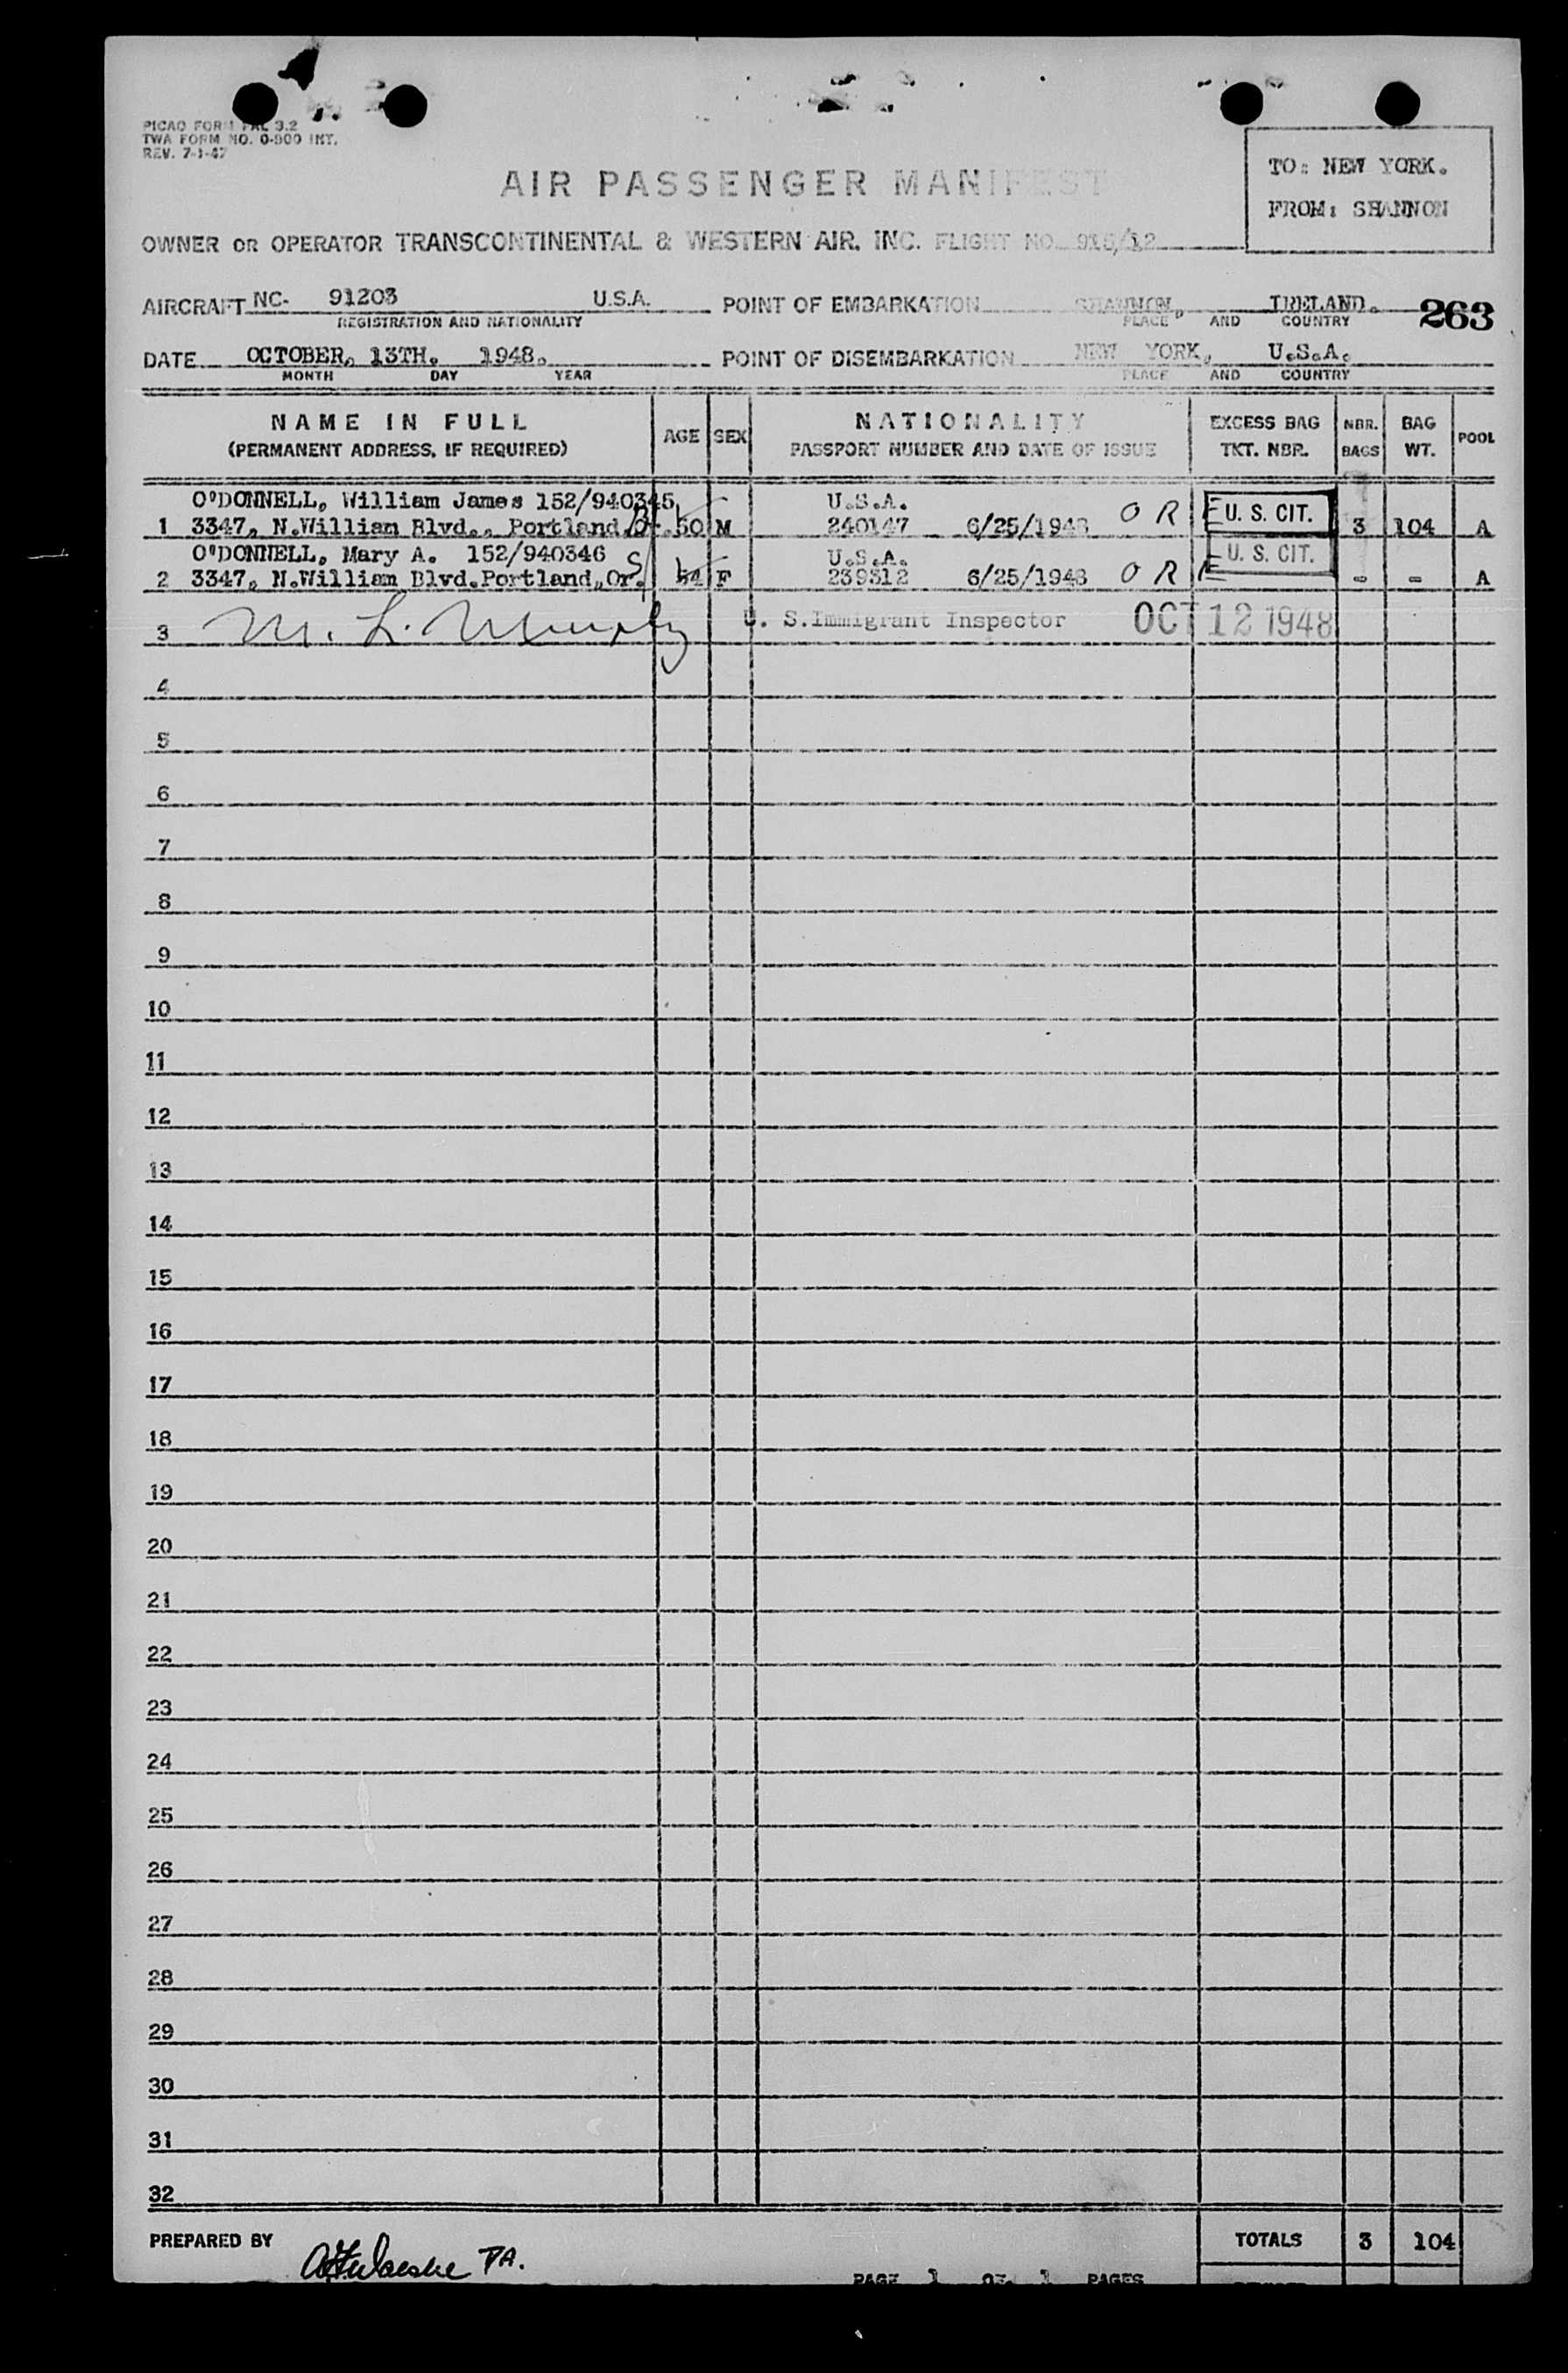 PICAO FORM FAL 3.2
TWA FORM NO. 0-900 INT.
REV. 7-1-47
TO: NEW YORK.
FROM: SHANNON
AIR PASSENGER MANIFEST
OWNER OR OPERATOR TRANSCONTINENTAL & WESTERN AIR. INC. FLIGHT NO. 915/12
AIRCRAFT NC- 91203 U.S.A. POINT OF EMBARKATION SHANNON, IRELAND. 263
REGISTRATION AND NATIONALITY PLACE AND COUNTRY
DATE OCTOBER, 13TH. 1948. POINT OF DISEMBARKATION NEW YORK, U.S.A.
MONTH DAY YEAR PLACE AND COUNTRY
NAME IN FULL (PERMANENT ADDRESS, IF REQUIRED) AGE SEX NATIONALITY PASSPORT NUMBER AND DATE OF ISSUE EXCESS BAG TKT. NBR. NBR. BAGS BAG WT. POOL
O'DONNELL, William James 152/940345 U.S.A.
1 3347, N.William Blvd., Portland, Or. 50 M 240147 6/25/1948 O R U. S. CIT. 3 104 A
O'DONNELL, Mary A. 152/940346 S U.S.A. U. S. CIT.
2 3347, N.William Blvd.Portland,,Or. 54 F 239312 6/25/1948 O R - - A
3 M. L. Murphy U. S.Immigrant Inspector OCT 12 1948
4
5
6
7
8
9
10
11
12
13
14
15
16
17
18
19
20
21
22
23
24
25
26
27
28
29
30
31
32
PREPARED BY TA. TOTALS 3 104
PAGE 1 OF 1 PAGES